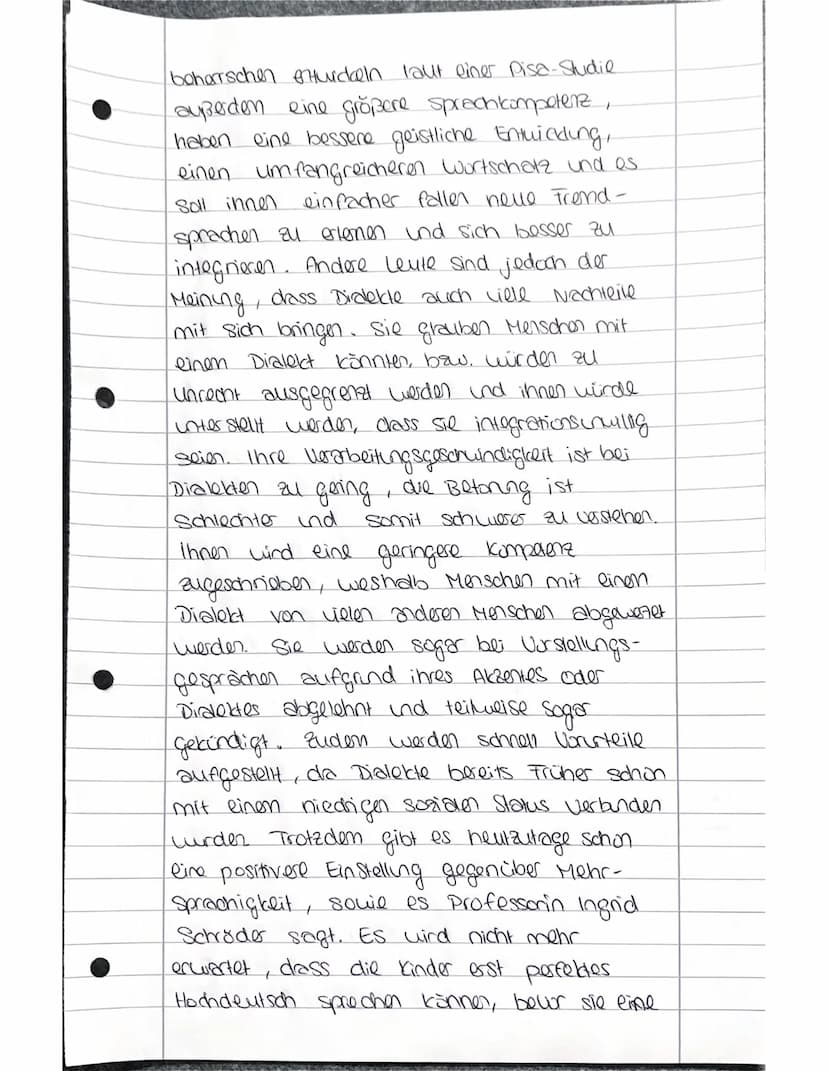 beherrschen entwickeln laut einer Pisa-Studie
außerdem eine größere Sprachkompetenz,
haben eine bessere geistliche Entwicklung,
einen umfangreicheren Wortschatz und es
soll ihnen einfacher fallen neue Fremd-
sprachen zu erlernen und sich besser zu
integrieren. Andere Leute sind jedoch der
Meinung, dass Dialekte auch viele Nachteile
mit sich bringen. Sie glauben Menschen mit
einem Dialekt könnten, bzw. würden zu
unrecht ausgegrenzt werden und ihnen würde
unterstellt werden, dass sie integrationsunwillig
seien. Ihre Verarbeitungsgeschwindigkeit ist bei
Dialekten zu gering, die Betonung ist
schlechter und somit schwerer zu verstehen.
Ihnen wird eine geringere Kompetenz
zugeschrieben, weshalb Menschen mit einem
Dialekt von vielen anderen Menschen abgewertet
werden. Sie werden sogar bei Vorstellungs-
gesprächen aufgrund ihres Akzentes oder
Dialektes abgelehnt und teilweise sogar
gekündigt. Zudem werden schnell Vorurteile
aufgestellt, da Dialekte bereits früher schon
mit einem niedrigen sozialen Status verbunden
wurden Trotzdem gibt es heutzutage schon
eine positivere Einstellung gegenüber Mehr-
sprachigkeit, sowie es Professorin Ingrid
Schröder sagt. Es wird nicht mehr
erwartet, dass die Kinder erst perfektes
Hochdeutsch sprechen können, bevor sie eine